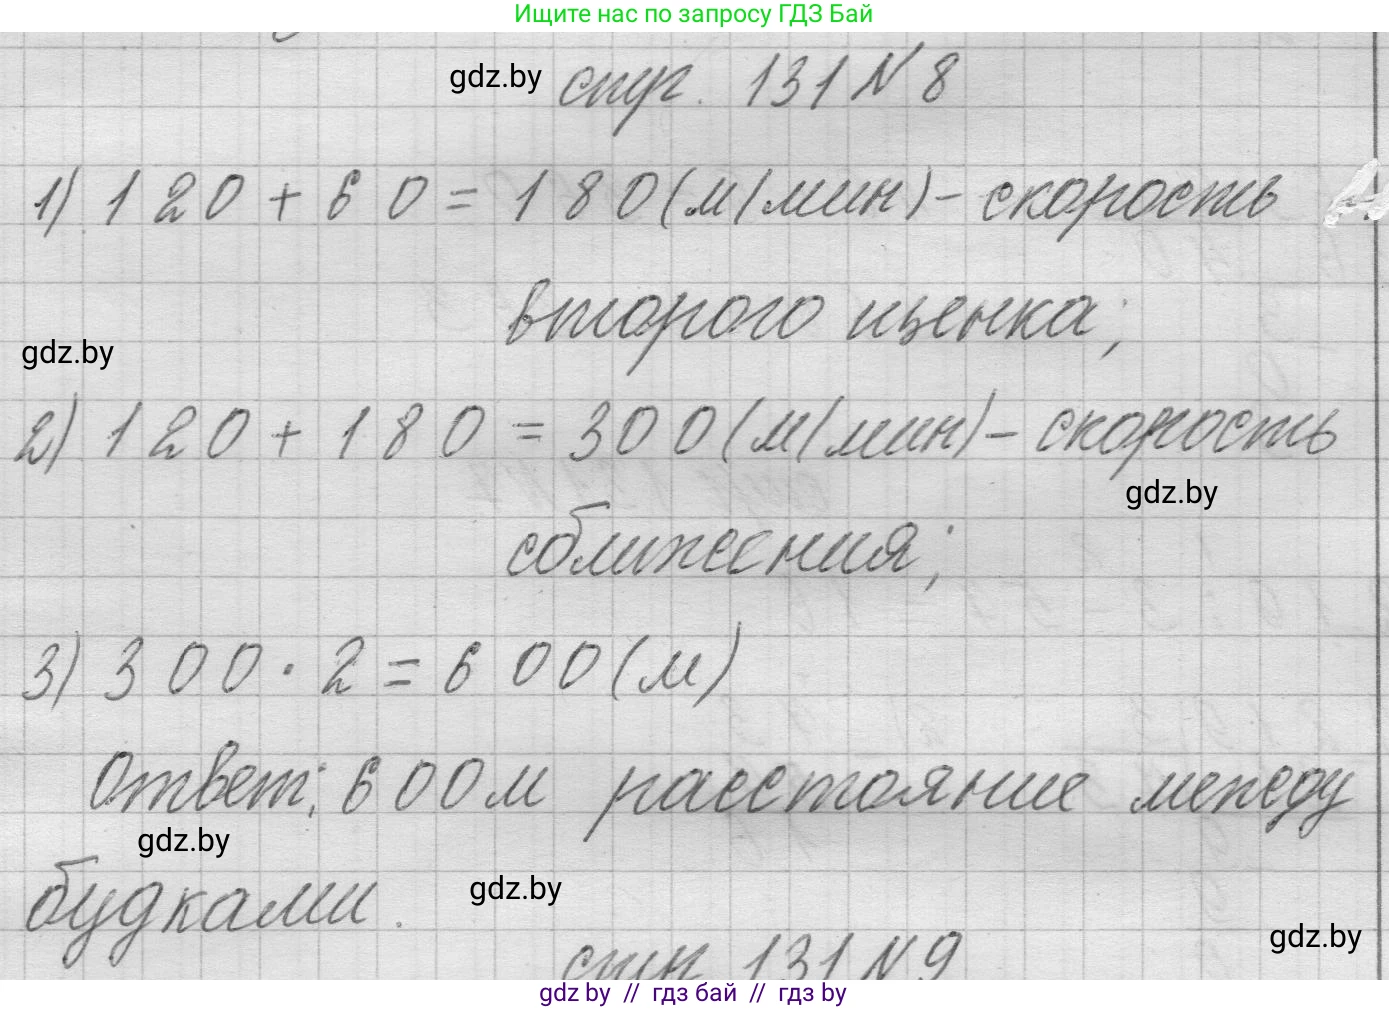 Ищите нас по запросу ГДЗ Бай
gdz.by стр. 131 № 8
1) 120 + 60 = 180 (м/мин) - скорость
второго щенка;
gdz.by
2) 120 + 180 = 300 (м/мин) - скорость
gdz.by
сближения;
3) 300 · 2 = 600 (м)
Ответ: 600 м расстояние между
gdz.by
будками.
gdz.by
gdz.by
стр. 131 № 9
gdz by // гдз бай // гдз by